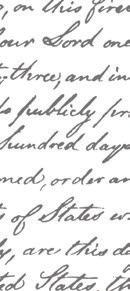 on this first
our Lord one
three, and in
publicly pro
hundred days
ned, order an
of States w
are this da
ted States, th